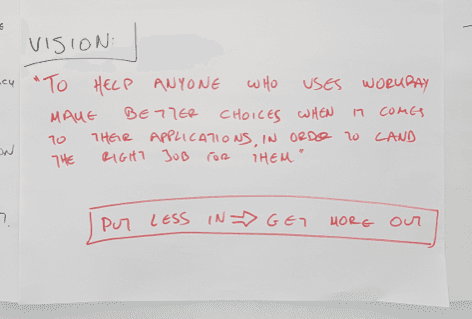 VISION:
"TO HELP ANYONE WHO USES WORKDAY
MAKE BETTER CHOICES WHEN IT COMES
TO THEIR APPLICATIONS, IN ORDER TO LAND
THE RIGHT JOB FOR THEM"
PUT LESS IN ⇒ GET MORE OUT